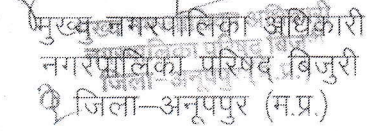 मुख्य नगरपालिका अधिकारी
नगरपालिका परिषद बिजुरी
जिला–अनूपपुर (म.प्र.)